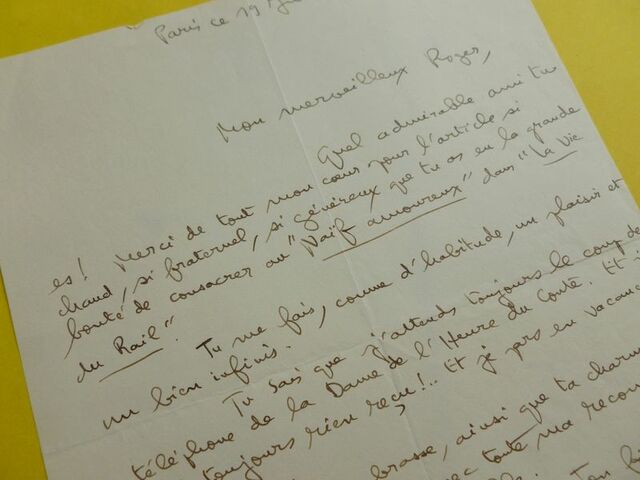 Paris ce 19
Mon merveilleux Roger,
Quel admirable ami tu
es! Merci de tout mon cœur pour l'article si
chaud, si fraternel, si généreux que tu as eu la grande
bonté de consacrer au "Naïf amoureux" dans "La Vie
du Rail".
Tu me fais, comme d'habitude, un plaisir et
un bien infinis.
Tu sais que j'attends toujours le coup de
téléphone de la Dame de l'Heure du Conte. Et j
toujours rien reçu!.. Et je pars en vacanc
brasse, ainsi que ta charm
toute ma recon